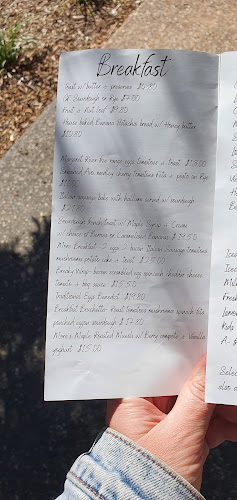 Breakfast
Toast w butter + preserves $6.90
GF Sourdough or Rye $7.90
Fruit + Nut loaf $9.80
House baked Banana Pistachio bread w/ Honey butter
$10.80
Margaret River free range eggs tomatoes + toast $13.00
Smashed Avo medley cherry tomatoes Feta + pesto on Rye
Italian sausage bake with Italian bread w/ sourdough
Sourdough frenchtoast w/ Maple Syrup + Cream
w/ choice of Bacon or Caramelised Bananas $19.50
Mons Breakfast-2 eggs bacon Italian Sausage tomatoes
mushrooms potato cake + toast $25.00
Breaky Wrap- bacon scrambled egg spinach cheddar cheese
tomato + bbq sauce $15.50
Traditional Eggs Benedict $19.80
Breakfast Bruschetta- Roast tomatoes mushrooms spinach feta
poached eggs sourdough $17.80
Mons's Maple Roasted Muesli w/ Berry compote + Vanilla
yoghurt $15.00
Milk
Fresh
Kids
A-
Selec
also a